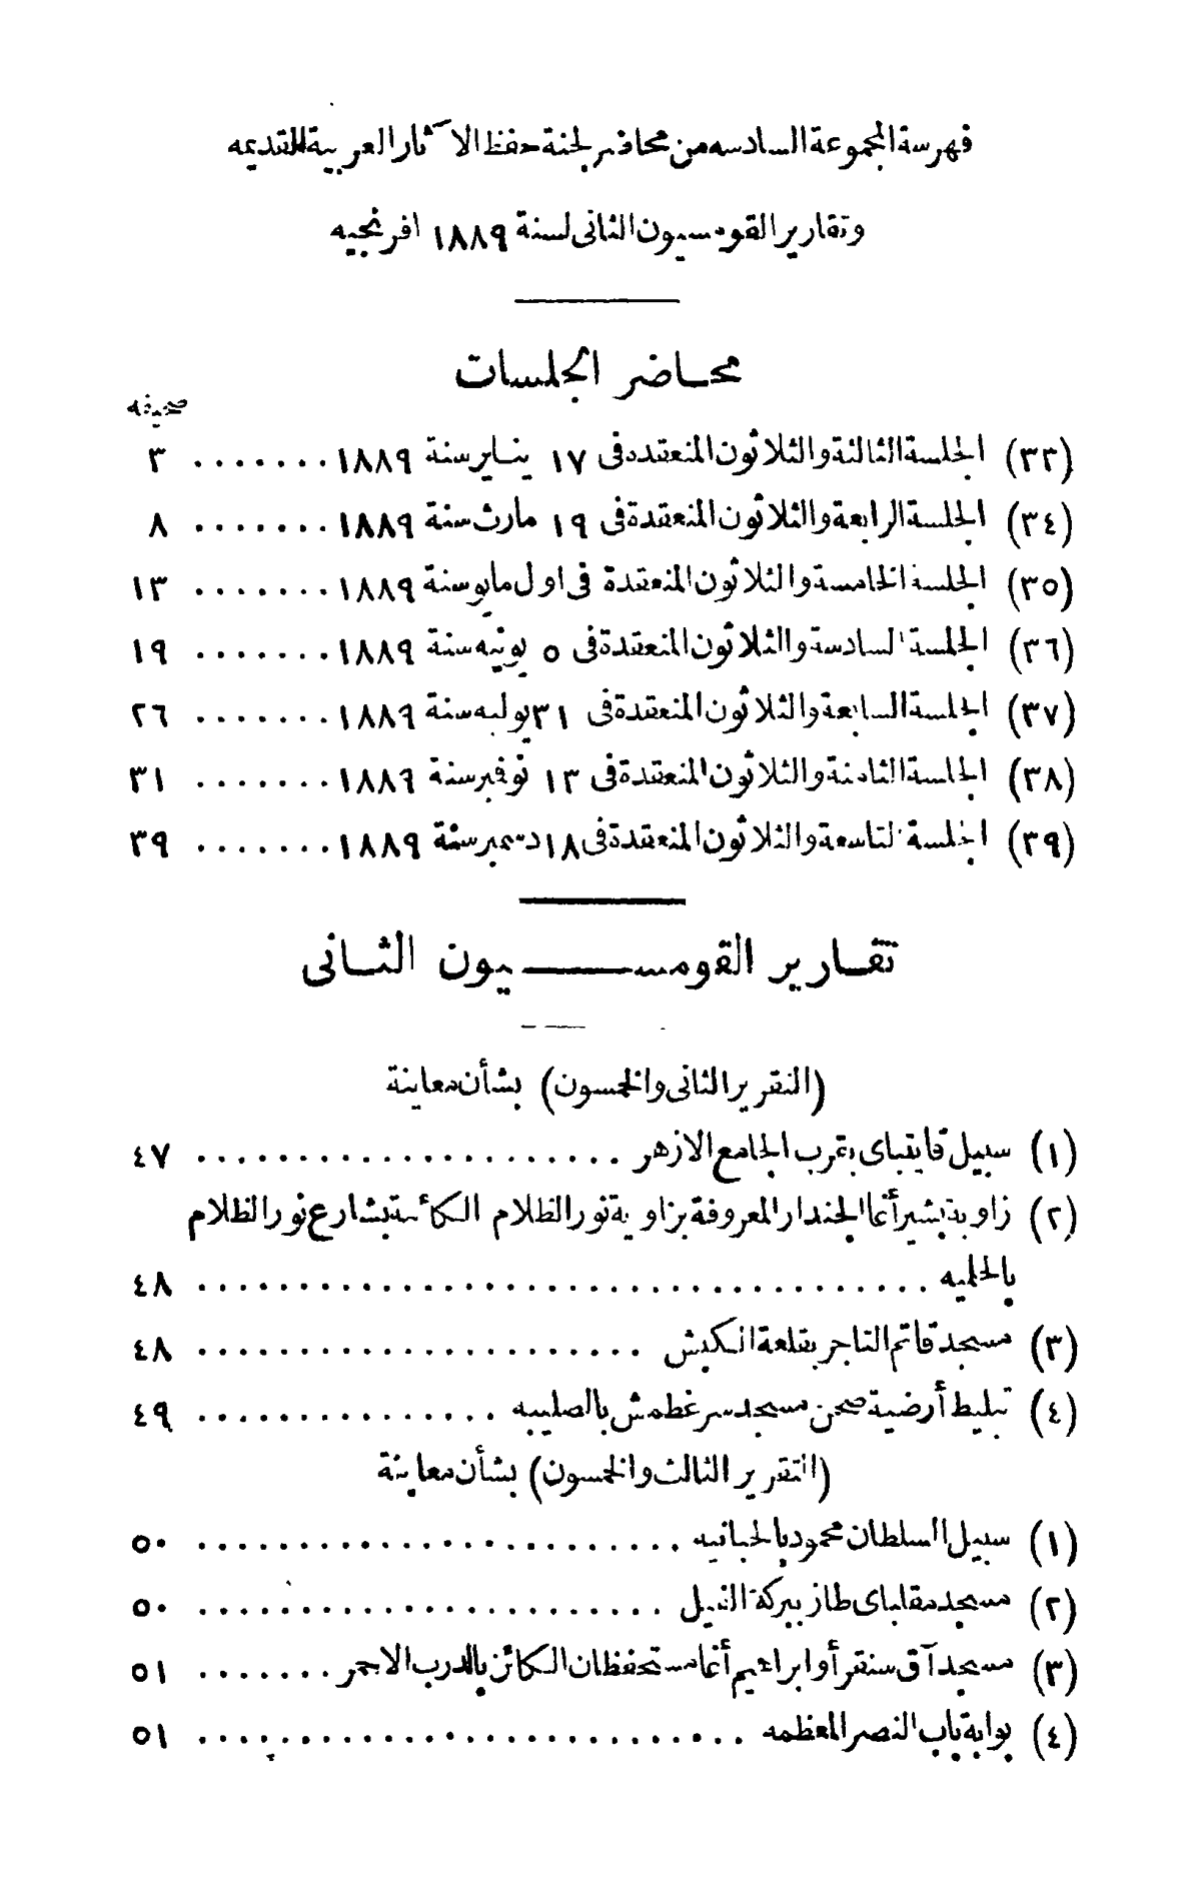 فهرسة المجموعة السادسه من محاضر لجنة حفظ الآثار العربية القديمه
وتقارير القومسيون الثانى لسنة ١٨٨٩ افرنجيه
محاضر الجلسات
صحيفه
(٣٣) الجلسة الثالثة والثلاثون المنعقده فى ١٧ يناير سنة ١٨٨٩ ....... ٣
(٣٤) الجلسة الرابعة والثلاثون المنعقدة فى ١٩ مارث سنة ١٨٨٩ ....... ٨
(٣٥) الجلسة الخامسة والثلاثون المنعقدة فى اول مايو سنة ١٨٨٩ ....... ١٣
(٣٦) الجلسة السادسة والثلاثون المنعقدة فى ٥ يونيه سنة ١٨٨٩ ....... ١٩
(٣٧) الجلسة السابعة والثلاثون المنعقدة فى ٣١ يوليه سنة ١٨٨٩ ....... ٢٦
(٣٨) الجلسة الثامنة والثلاثون المنعقدة فى ١٣ نوفمبر سنة ١٨٨٩ ....... ٣١
(٣٩) الجلسة التاسعة والثلاثون المنعقدة فى ١٨ ديسمبر سنة ١٨٨٩ ....... ٣٩
تقارير القومسيون الثانى
(التقرير الثانى والخمسون) بشأن معاينة
(١) سبيل قايتباى بقرب الجامع الازهر ...................... ٤٧
(٢) زاوية بشير أغا الجندار المعروفة بزاوية نور الظلام الكائنة بشارع نور الظلام
بالحلميه .................................... ٤٨
(٣) مسجد قاتم التاجر بقلعة الكبش ...................... ٤٨
(٤) تبليط أرضية صحن مسجد سرغطمش بالصليبه ............... ٤٩
(التقرير الثالث والخمسون) بشأن معاينة
(١) سبيل السلطان محمود بالحبانيه ........................ ٥٠
(٢) مسجد مقلباى طاز ببركة الفيل ....................... ٥٠
(٣) مسجد آق سنقر أو ابراهيم أغا مستحفظان الكائن بالدرب الاحمر ....... ٥١
(٤) بوابة باب النصر المعظمه ........................... ٥١